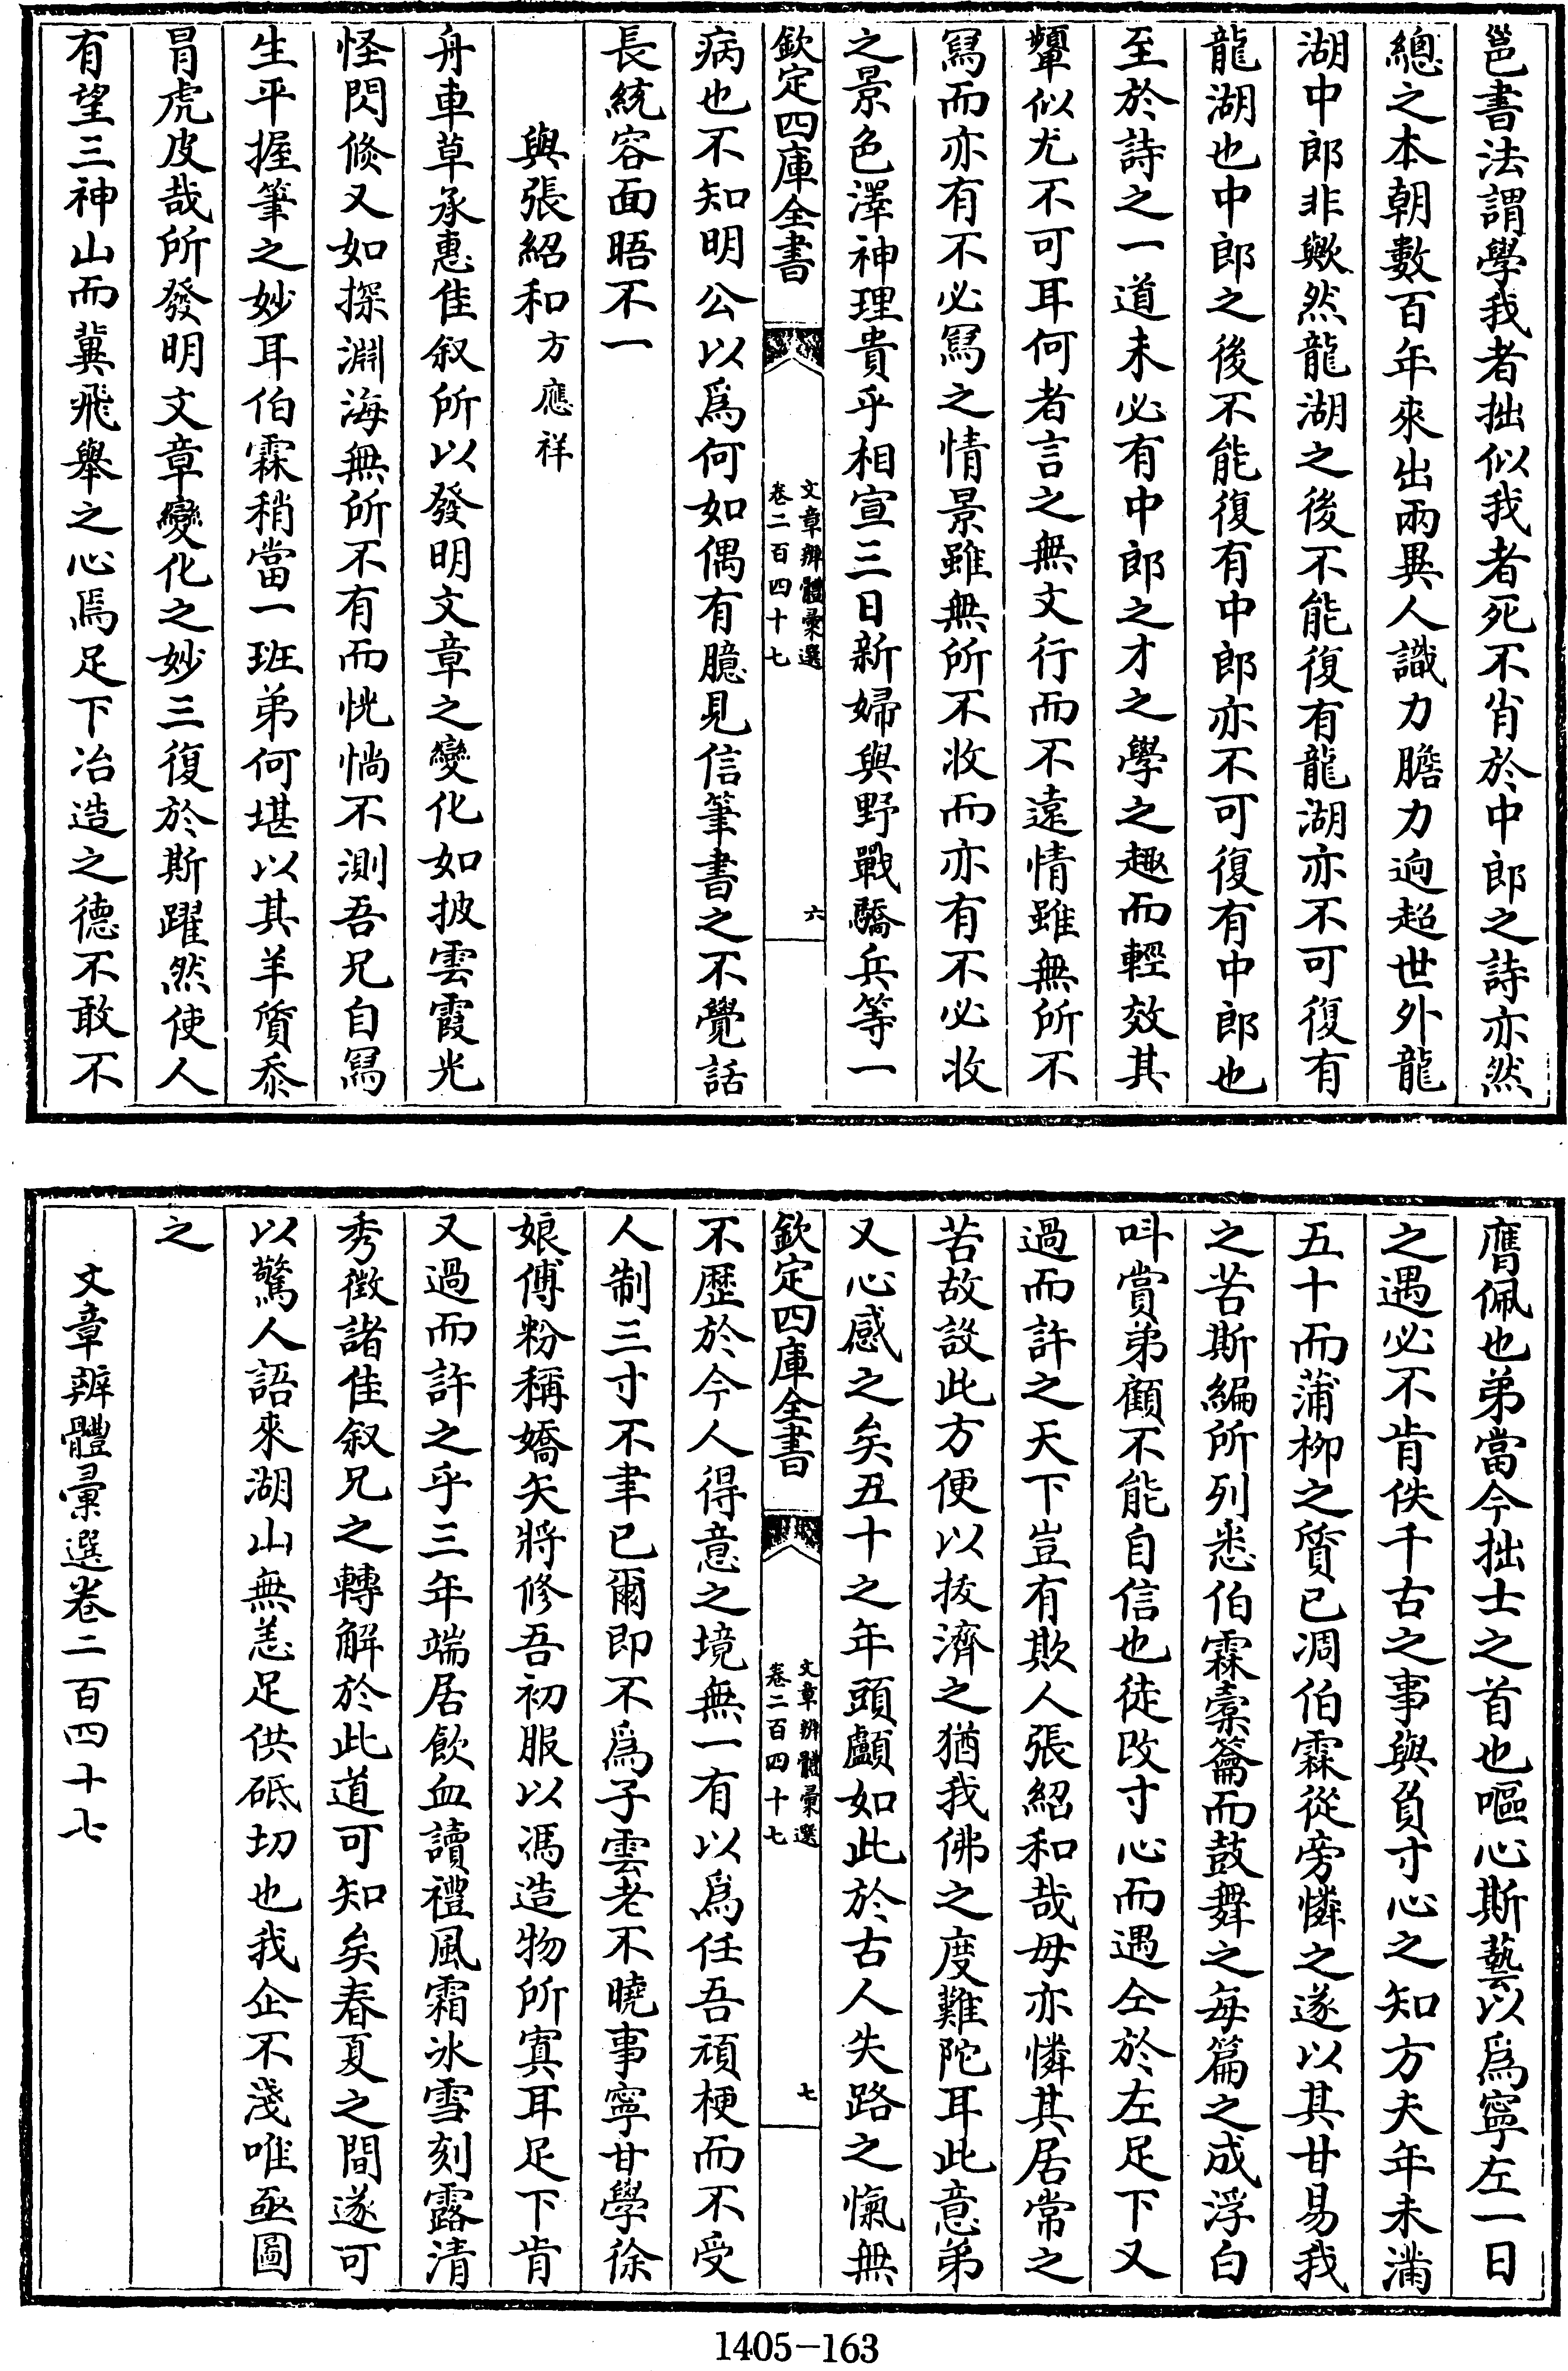 邕書法謂學我者拙似我者死不肖於中郎之詩亦然
總之本朝數百年來出兩異人識力膽力逈超世外龍
湖中郎非歟然龍湖之後不能復有龍湖亦不可復有
龍湖也中郎之後不能復有中郎亦不可復有中郎也
至於詩之一道未必有中郎之才之學之趣而輕效其
顰似尤不可耳何者言之無文行而不遠情雖無所不
冩而亦有不必冩之情景雖無所不收而亦有不必收
之景色澤神理貴乎相宣三日新婦與野戰驕兵等一
欽定四庫全書
文章辨體彚選
卷二百四十七
六
病也不知明公以爲何如偶有臆見信筆書之不覺話
長統容面晤不一
與張紹和方應祥
舟車草承惠佳叙所以發明文章之變化如披雲霞光
怪閃倐又如探淵海無所不有而恍惝不測吾兄自冩
生平握筆之妙耳伯霖稍當一班弟何堪以其羊質忝
冐虎皮哉所發明文章變化之妙三復於斯躍然使人
有望三神山而冀飛舉之心焉足下冶造之德不敢不
膺佩也弟當今拙士之首也嘔心斯藝以爲寧左一日
之遇必不肯佚千古之事與負寸心之知方夫年未滿
五十而蒲柳之質已凋伯霖從旁憐之遂以其甘易我
之苦斯編所列悉伯霖橐籥而鼓舞之每篇之成浮白
呌賞弟顧不能自信也徒改寸心而遇仝於左足下又
過而許之天下豈有欺人張紹和哉毋亦憐其居常之
苦故設此方便以拔濟之猶我佛之度難陀耳此意弟
又心感之矣五十之年頭顱如此於古人失路之愾無
欽定四庫全書
文章辨體彚選
卷二百四十七
七
不歷於今人得意之境無一有以爲任吾頑梗而不受
人制三寸不聿已爾即不爲子雲老不曉事寧甘學徐
娘傅粉稱嬌矢將修吾初服以馮造物所寘耳足下肯
又過而許之乎三年端居飲血讀禮風霜氷雪刻露清
秀徵諸佳叙兄之轉解於此道可知矣春夏之間遂可
以驚人語來湖山無恙足供砥切也我企不淺唯亟圖
之
文章辨體彚選卷二百四十七
1405-163